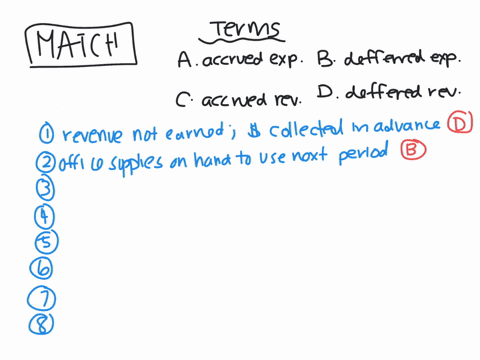 MATCH
Terms
A. accrued exp. B. defferred exp.
C. accrued rev. D. deffered rev.
① revenue not earned; $ collected in advance D
② office supplies on hand to use next period B
③
④
⑤
⑥
⑦
⑧